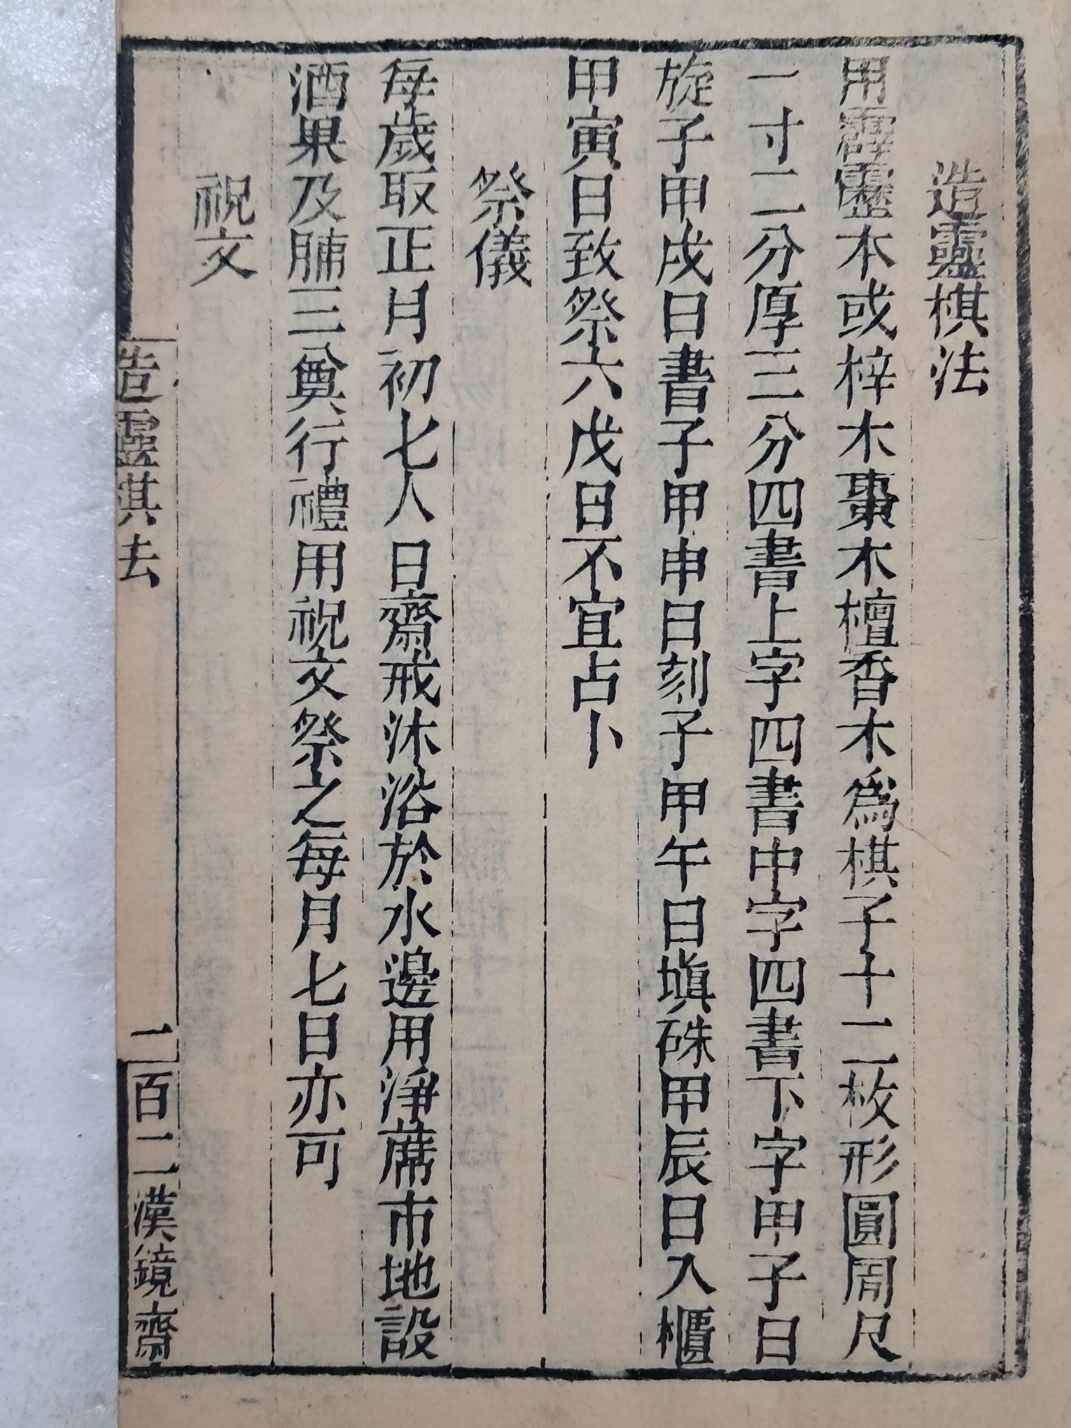 造靈棋法
用霹靂木或梓木棗木檀香木爲棋子十二枚形圓周尺
一寸二分厚三分四書上字四書中字四書下字甲子日
旋子甲戌日書子甲申日刻子甲午日塡硃甲辰日入櫃
甲寅日致祭六戊日不宜占卜
祭儀
每歲取正月初七人日齋戒沐浴於水邊用淨蓆布地設
酒果及脯三奠行禮用祝文祭之每月七日亦可
祝文
造靈棋法
二百二
漢鏡齋